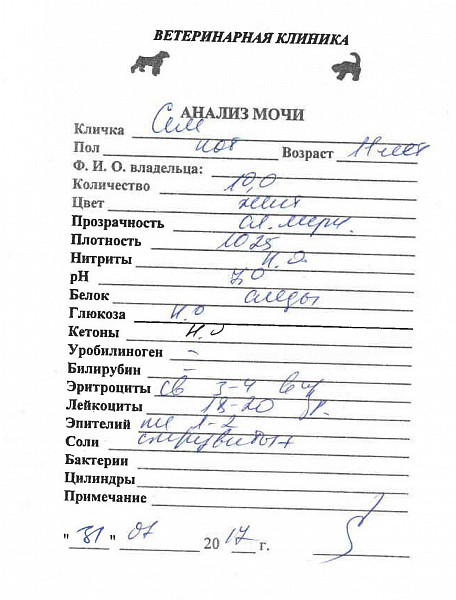 ВЕТЕРИНАРНАЯ КЛИНИКА
АНАЛИЗ МОЧИ
Кличка Сем
Пол кот Возраст 11 лет
Ф. И. О. владельца:
Количество 10,0
Цвет жел
Прозрачность сл. мутн.
Плотность 1025
Нитриты н.о.
рН 7,0
Белок следы
Глюкоза н.о
Кетоны н.о
Уробилиноген -
Билирубин -
Эритроциты св 3-4 в п/
Лейкоциты 18-20 зр.
Эпителий пл 1-2
Соли струвиты +
Бактерии
Цилиндры
Примечание
"31" 07 2017 г.